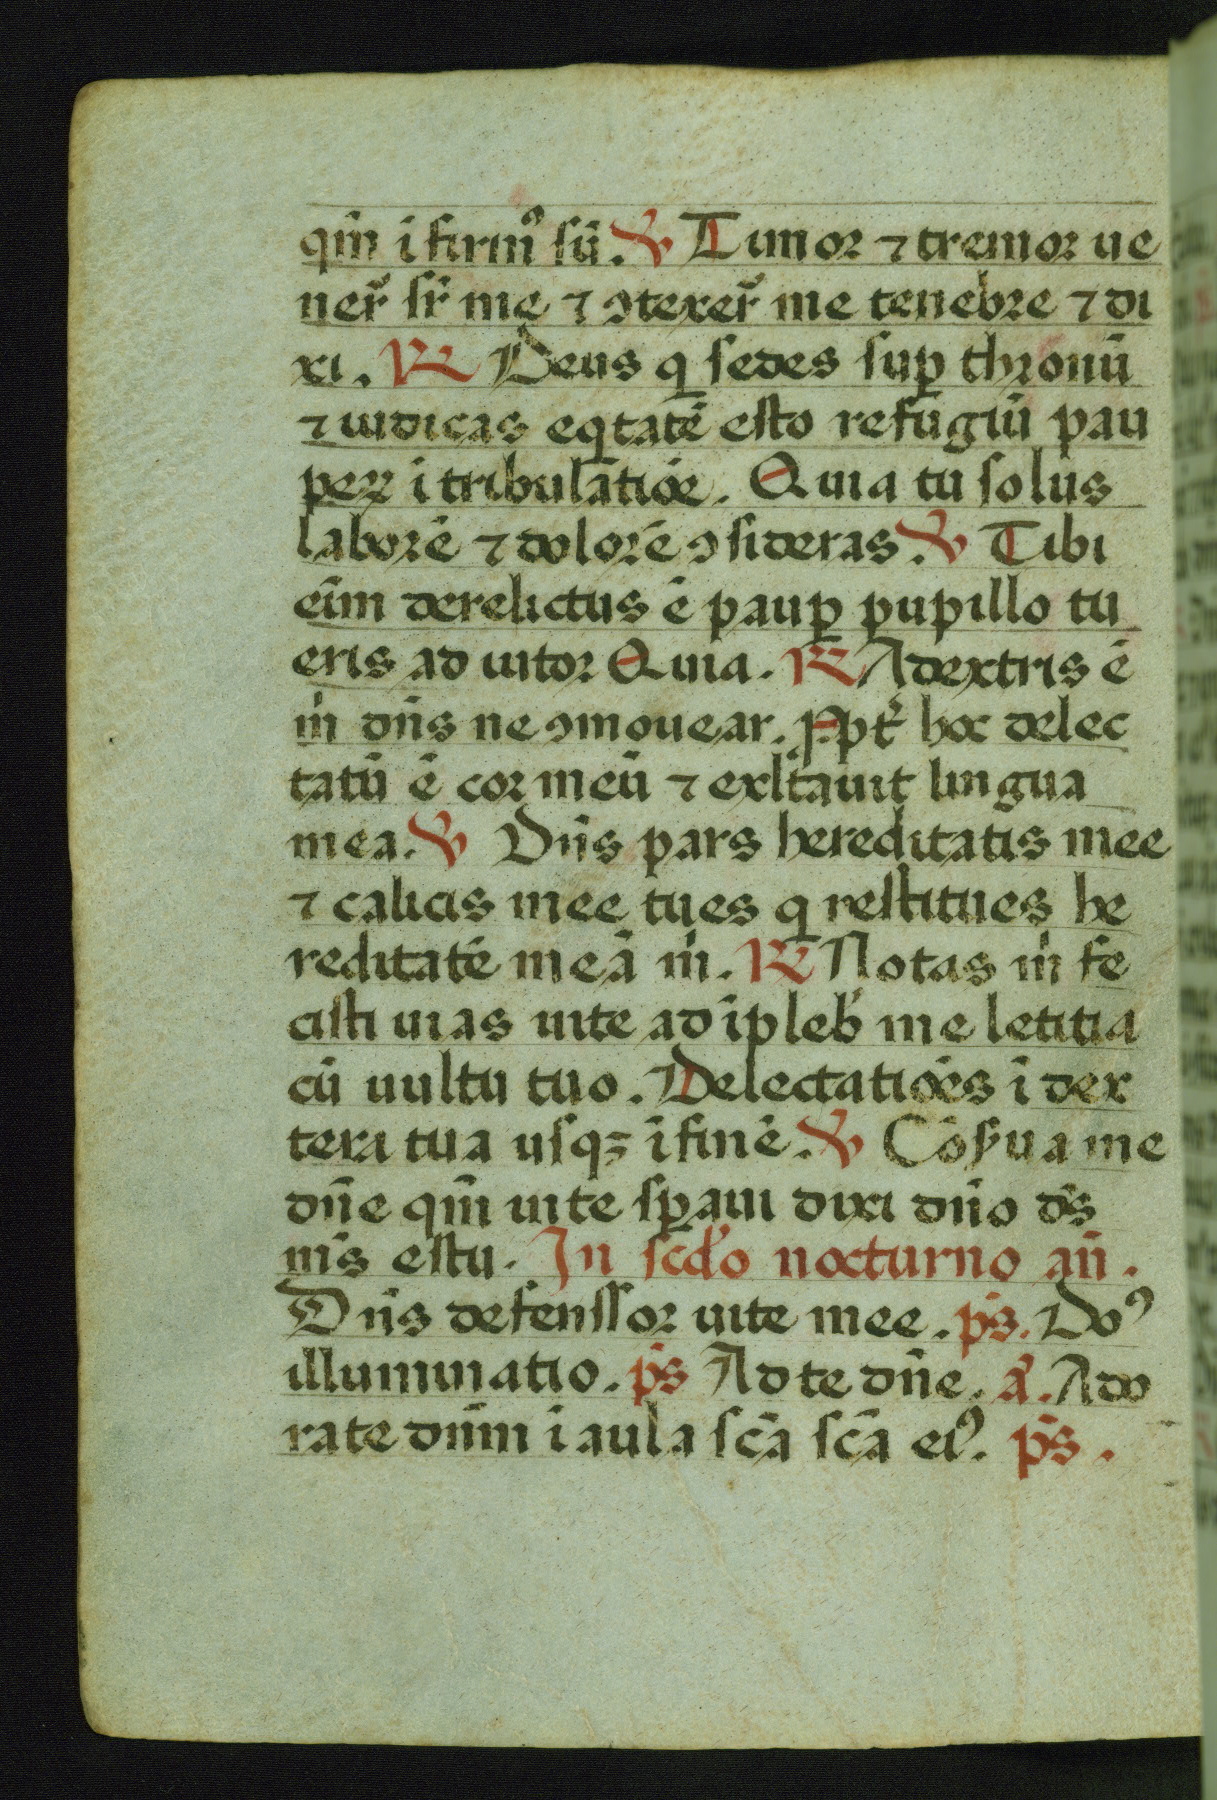 qm̄ ī firmꝰ sū. ℣ Timor ⁊ tremor ue
ner̃ sr̄ me ⁊ ꝯtexer̃ me tenebre ⁊ di
xi. ℟ Deus q sedes suꝑ thronū
⁊ iudicas eqtatē esto refugiū pau
peꝝ ī tribulatiōe. Quia tu solus
laborē ⁊ dolorē ꝯsideras. ℣ Tibi
eīm derelictus ē pauꝑ pupillo tu
eris ad iutor Quia. ℟ Adextris ē
m̄ dn̄s ne ꝯmouear. Ꝓpt̄ hoc delec
tatū ē cor meū ⁊ exl̄tauit lingua
mea. ℣ Dn̄s pars hereditatis mee
⁊ calicis mee tu es q restitues he
reditatē meā m̄. ℟ Notas m̄ fe
cisti uias uite ad īpleb̄ me letitia
cū uultu tuo. Delectatiōes ī dex
tera tua usqꝫ ī finē. ℣ Cōẜua me
dn̄e qm̄ ī te sꝑaui dixi dn̄o ds̄
m̄s es tu. In scd̄o nocturno an̄.
Dn̄s defenssor uite mee. ps̄. Doꝰ
illuminatio. ps̄ Ad te dn̄e. a᷎. Ado
rate dnm̄ ī aula scā scā eiꝰ. ps̄.